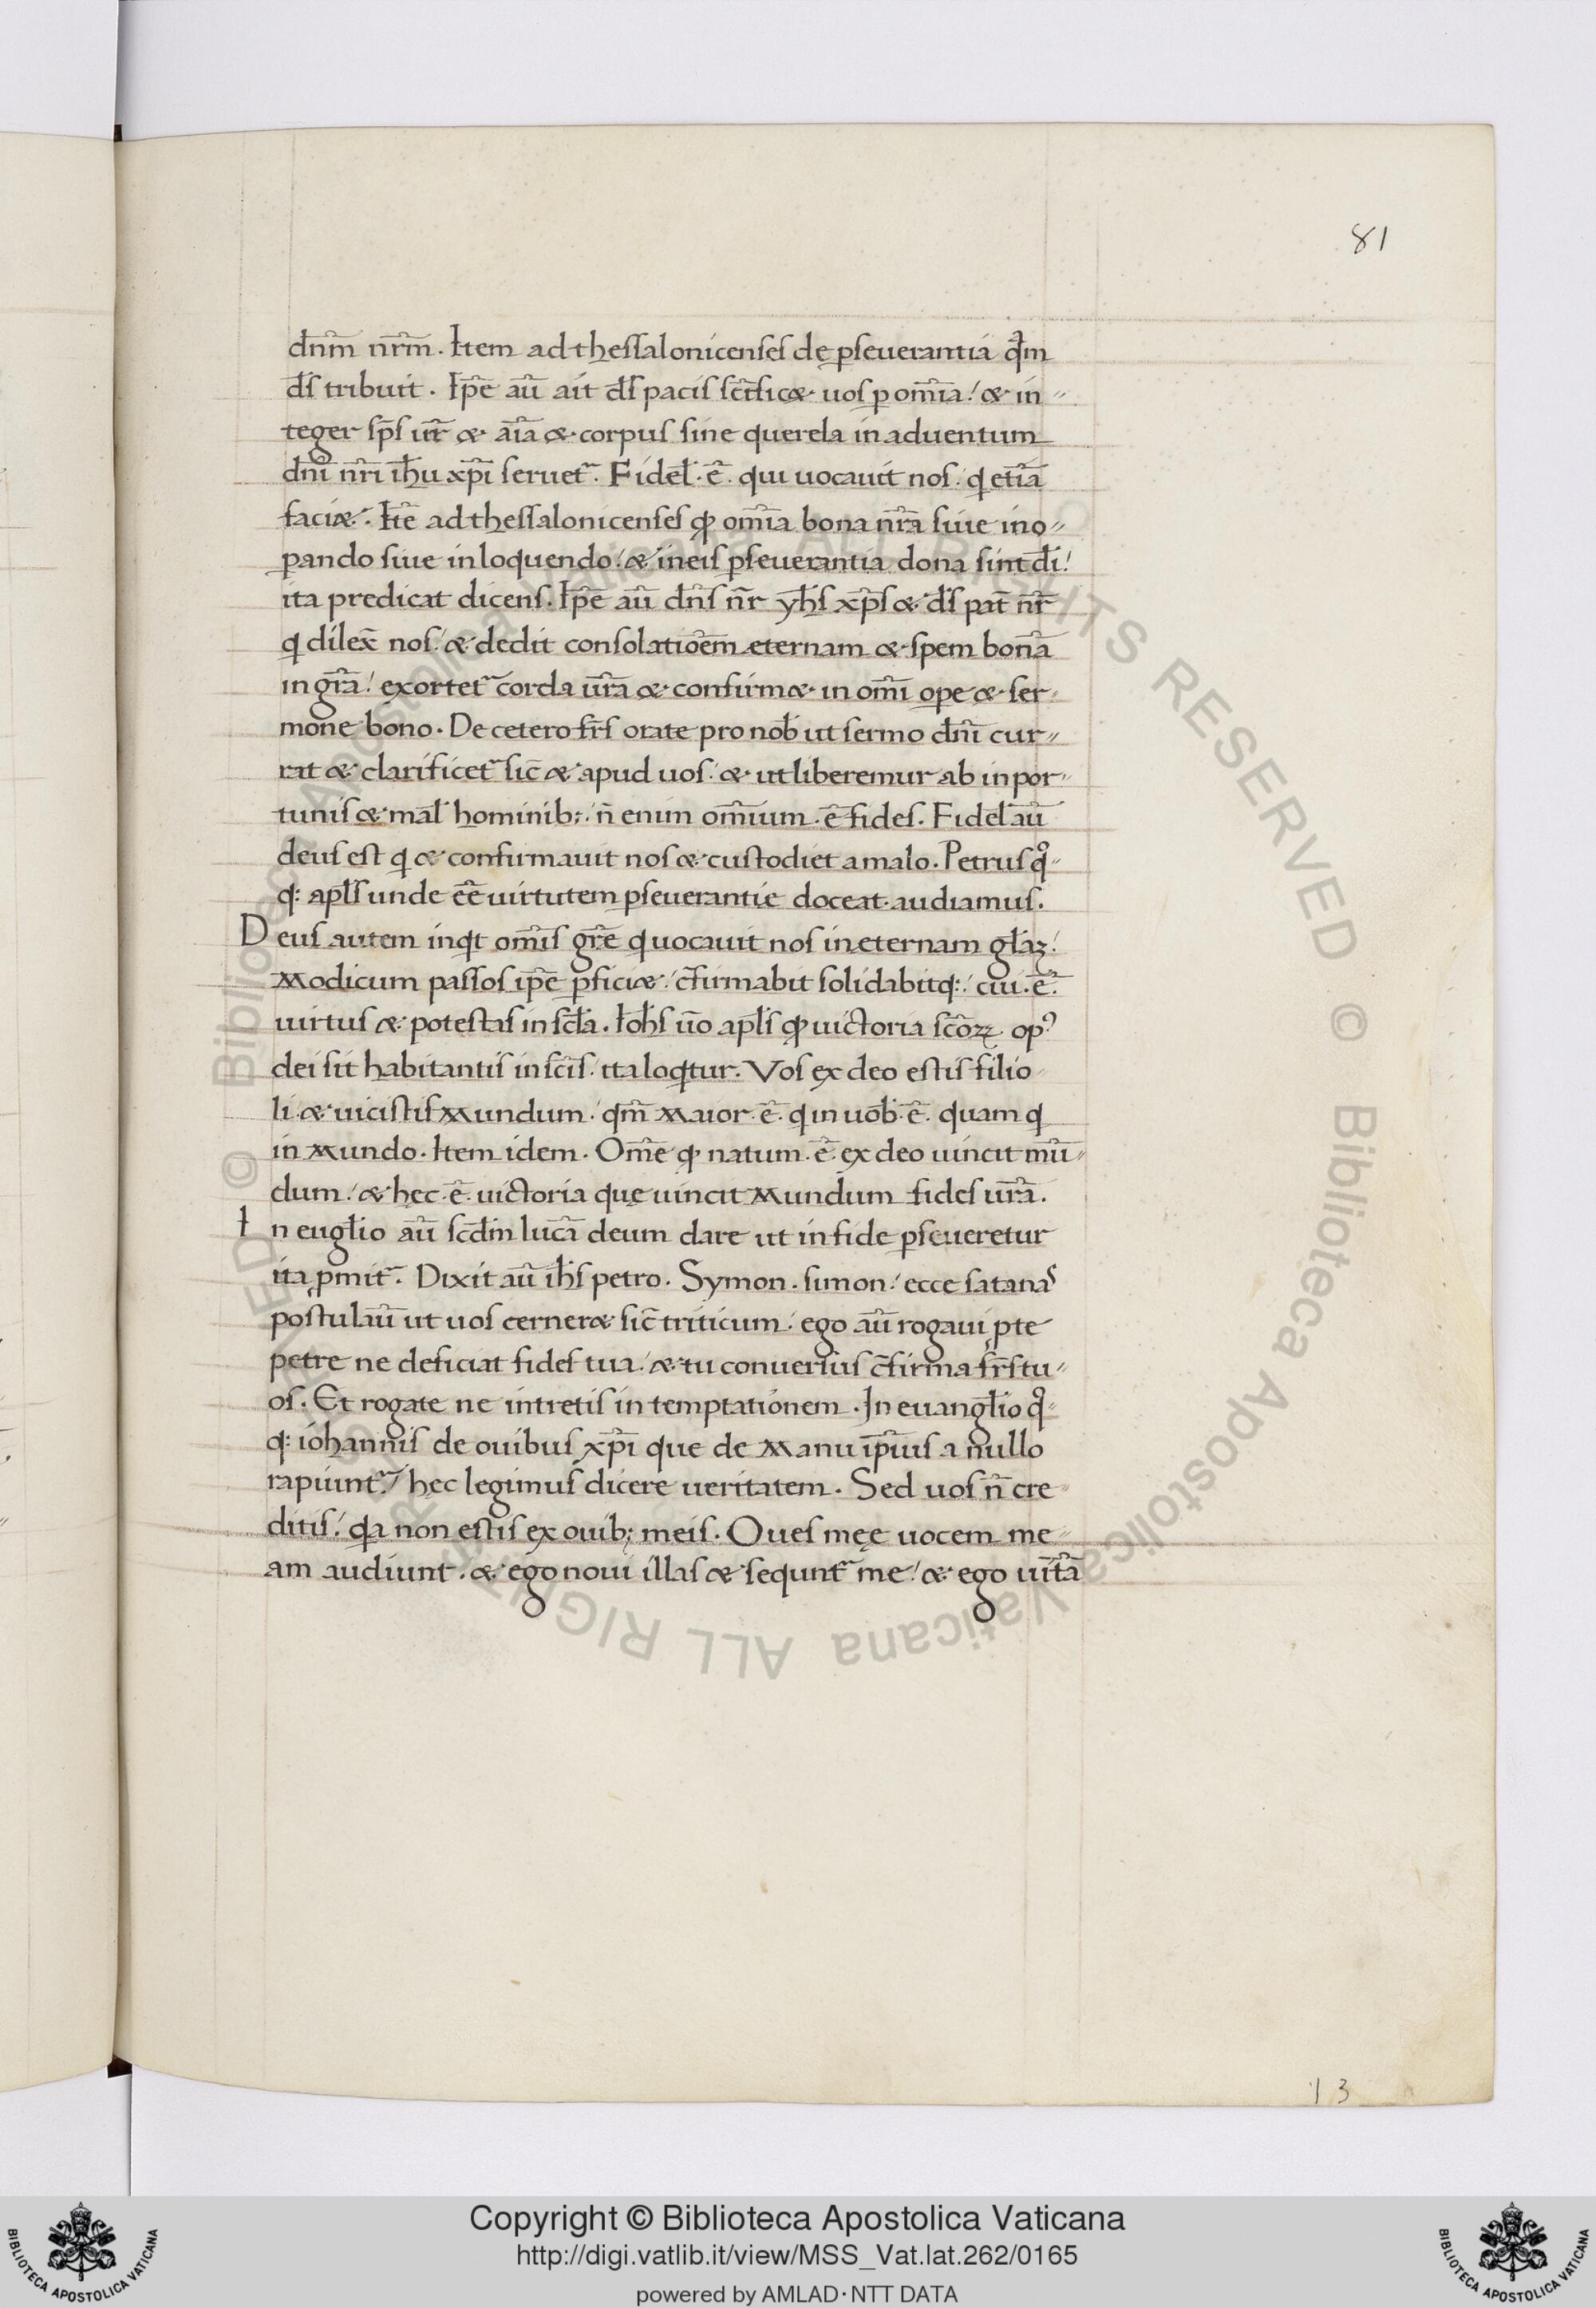 81
dn̄m nr̄m. Item ad thessalonicenses de ꝑseuerantia qᷓm
ds̄ tribuit. Ip̄e au̅ ait ds̄ pacis sc̄ificæ uos ꝑ om̄ia! & in-
teger sp̄s ur̄ & aīa & corpus sine querela in aduentum
dn̄i nr̄i ih̄u xp̄i seruet᷑. Fidel̄. ē. qui uocauit nos. q etiā
faciæ. Itē ad thessalonicenses qđ om̄ia bona nr̄a siue in o-
ꝑando siue in loquendo! & in eis ꝑseuerantia dona sint dī!
ita predicat dicens. Ip̄e au̅ dn̄s nr̄ yh̄s xp̄s & ds̄ pat̄ nr̄
q dilex̄ nos. & dedit consolatioēm æternam & spem bonā
in gr̄a! exortet᷑ corda ur̄a & confirmæ in om̄i oꝑe & ser-
mone bono. De cetero fr̄s orate pro nob̄ ut sermo dn̄i cur-
rat & clarificet᷑ sic̄ & apud uos. & ut liberemur ab inpor-
tunis & mal̄ hominib; n̄ enim om̄ium. ē fides. Fidel̄ au̅
deus est q & confirmauit nos & custodiet a malo. Petrus qͦ-
q: apl̄s unde eē uirtutem ꝑseuerantie doceat. audiamus.
Deus autem inqt om̄is gr̄e q uocauit nos in æternam gl̄aꝫ!
Modicum passos ip̄e ꝑficiæ. c̄firmabit solidabitq: cui. ē.
uirtus & potestas in scl̄a. Ioh̄s u̅o apl̄s qđ uictoria sc̄oꝝ opꝰ
dei sit habitantis in sc̄is. ita loqtur. Vos ex deo estis filio-
li. & uicistis Mundum. qm̄ Maior. ē. q in uob̄. ē. quam q
in Mundo. Item idem. Om̄e qđ natum. ē. ex deo uincit mu̅-
dum! & hęc. ē. uictoria quę uincit Mundum fides ur̄a.
In eugl̄io au̅ scd̄m lucā deum dare ut in fide ꝑseueretur
ita ꝓmit᷑. Dixit au̅ ih̄s petro. Symon. simon! ecce satanas
postulau̅ ut uos cerneræ sic̄ triticum. ego au̅ rogaui ꝓ te
petre ne deficiat fides tua. & tu conuersus c̄firma fr̄s tu-
os. Et rogate ne intretis in temptationem. In euangl̄io qͦ-
q: iohannis de ouibus xp̄i que de Manu ip̄ius a nullo
rapiunt᷑! hęc legimus dicere ueritatem. Sed uos n̄ cre-
ditis! qa non estis ex ouib; meis. Oues męę uocem me-
am audiunt. & ego noui illas & sequnt᷑ me! & ego uitā
13
Copyright © Biblioteca Apostolica Vaticana
http://digi.vatlib.it/view/MSS_Vat.lat.262/0165
powered by AMLAD·NTT DATA